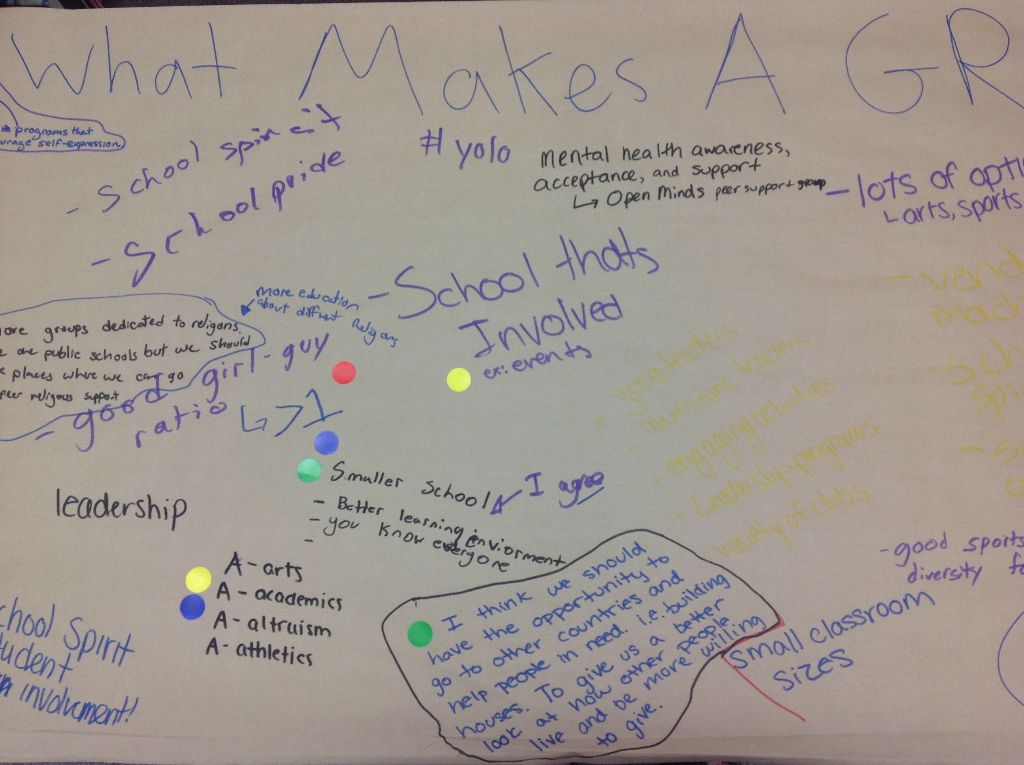 What Makes A GR
programs that
urage self-expression
- School spirit
- School pride
# yolo
Mental health awareness,
acceptance, and support
↳ Open Minds peer support group
- lots of opti
↳ arts, sports
- School thats
Involved
ex: events
More education
about diffrent Religons
ore groups dedicated to religons.
e are public schools but we should
e places where we can go
peer religous support
- good girl-guy
ratio
↳ > 1
Smaller School
- Better learning enviorment
- you know everyone
-
I agree
leadership
A - arts
A - academics
A - altruism
A - athletics
chool Spirit
tudent
involvment!
I think we should
have the opportunity to
go to other countries and
help people in need. i.e. building
houses. To give us a better
look at how other people
live and be more willing
to give.
- good teachers
- awesome leaders
- engaging activities
- Leadership programs
variety of clubs
- vend
mach
- sch
spi
- good sports
diversity fo
small classroom
sizes